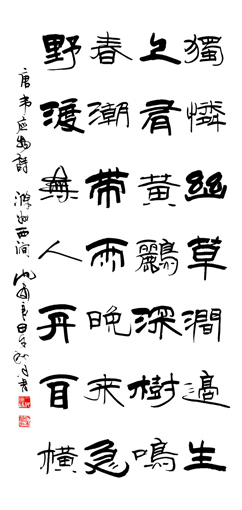 獨憐幽草澗邊生
上有黃鸝深樹鳴
春潮帶雨晚來急
野渡無人舟自橫
唐韦应物詩 滁州西涧